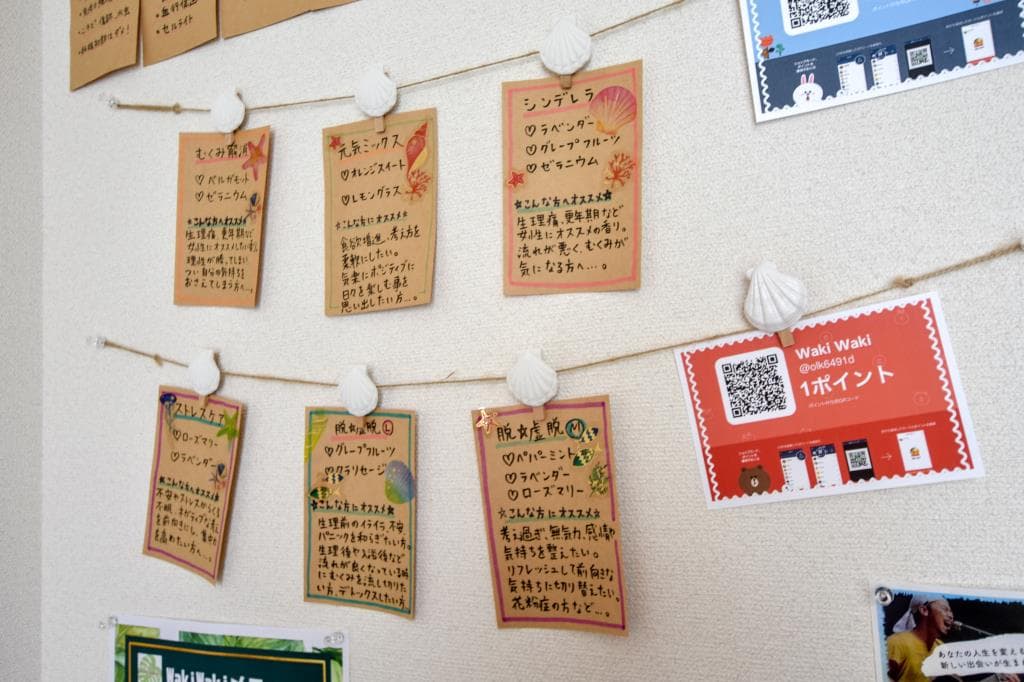 ・セルライト
むくみ解消
♡ベルガモット
♡ゼラニウム
☆こんな方へオススメ☆
生理痛、更年期など
女性にオススメしたい香り
理性が勝ってしまい
つい自分の気持ちを
おさえてしまう方へ…。
元気ミックス
♡オレンジスイート
♡レモングラス
☆こんな方にオススメ☆
食欲増進、考え方を
柔軟にしたい。
気楽にポジティブに
日々を楽しむ事を
思い出したい方…。
シンデレラ
♡ラベンダー
♡グレープフルーツ
♡ゼラニウム
☆こんな方へオススメ☆
生理痛、更年期など
女性にオススメの香り。
流れが悪く、むくみが
気になる方へ…。
ストレスケア
♡ローズマリー
♡ラベンダー
☆こんな方へオススメ☆
不安やストレスからくる
不眠、ネガティブな考え
を前向きにし、集中力
を高めたい方へ…。
脱☆虚脱 Ⓛ
♡グレープフルーツ
♡クラリセージ
☆こんな方にオススメ☆
生理前のイライラ、不安
パニックを和らぎたい方。
生理後や入浴後など
流れが良くなっている時
にむくみを流し切りた
い方、デトックスしたい方
脱☆虚脱 Ⓜ
♡ペパーミント
♡ラベンダー
♡ローズマリー
☆こんな方にオススメ☆
考え過ぎ、無気力、感情や
気持ちを整えたい。
リフレッシュして前向きな
気持ちに切り替えたい。
花粉症の方など…。
Waki Waki
@olk6491d
1ポイント
ポイント付与用QRコード
あなたの人生を変える
新しい出会いが生ま